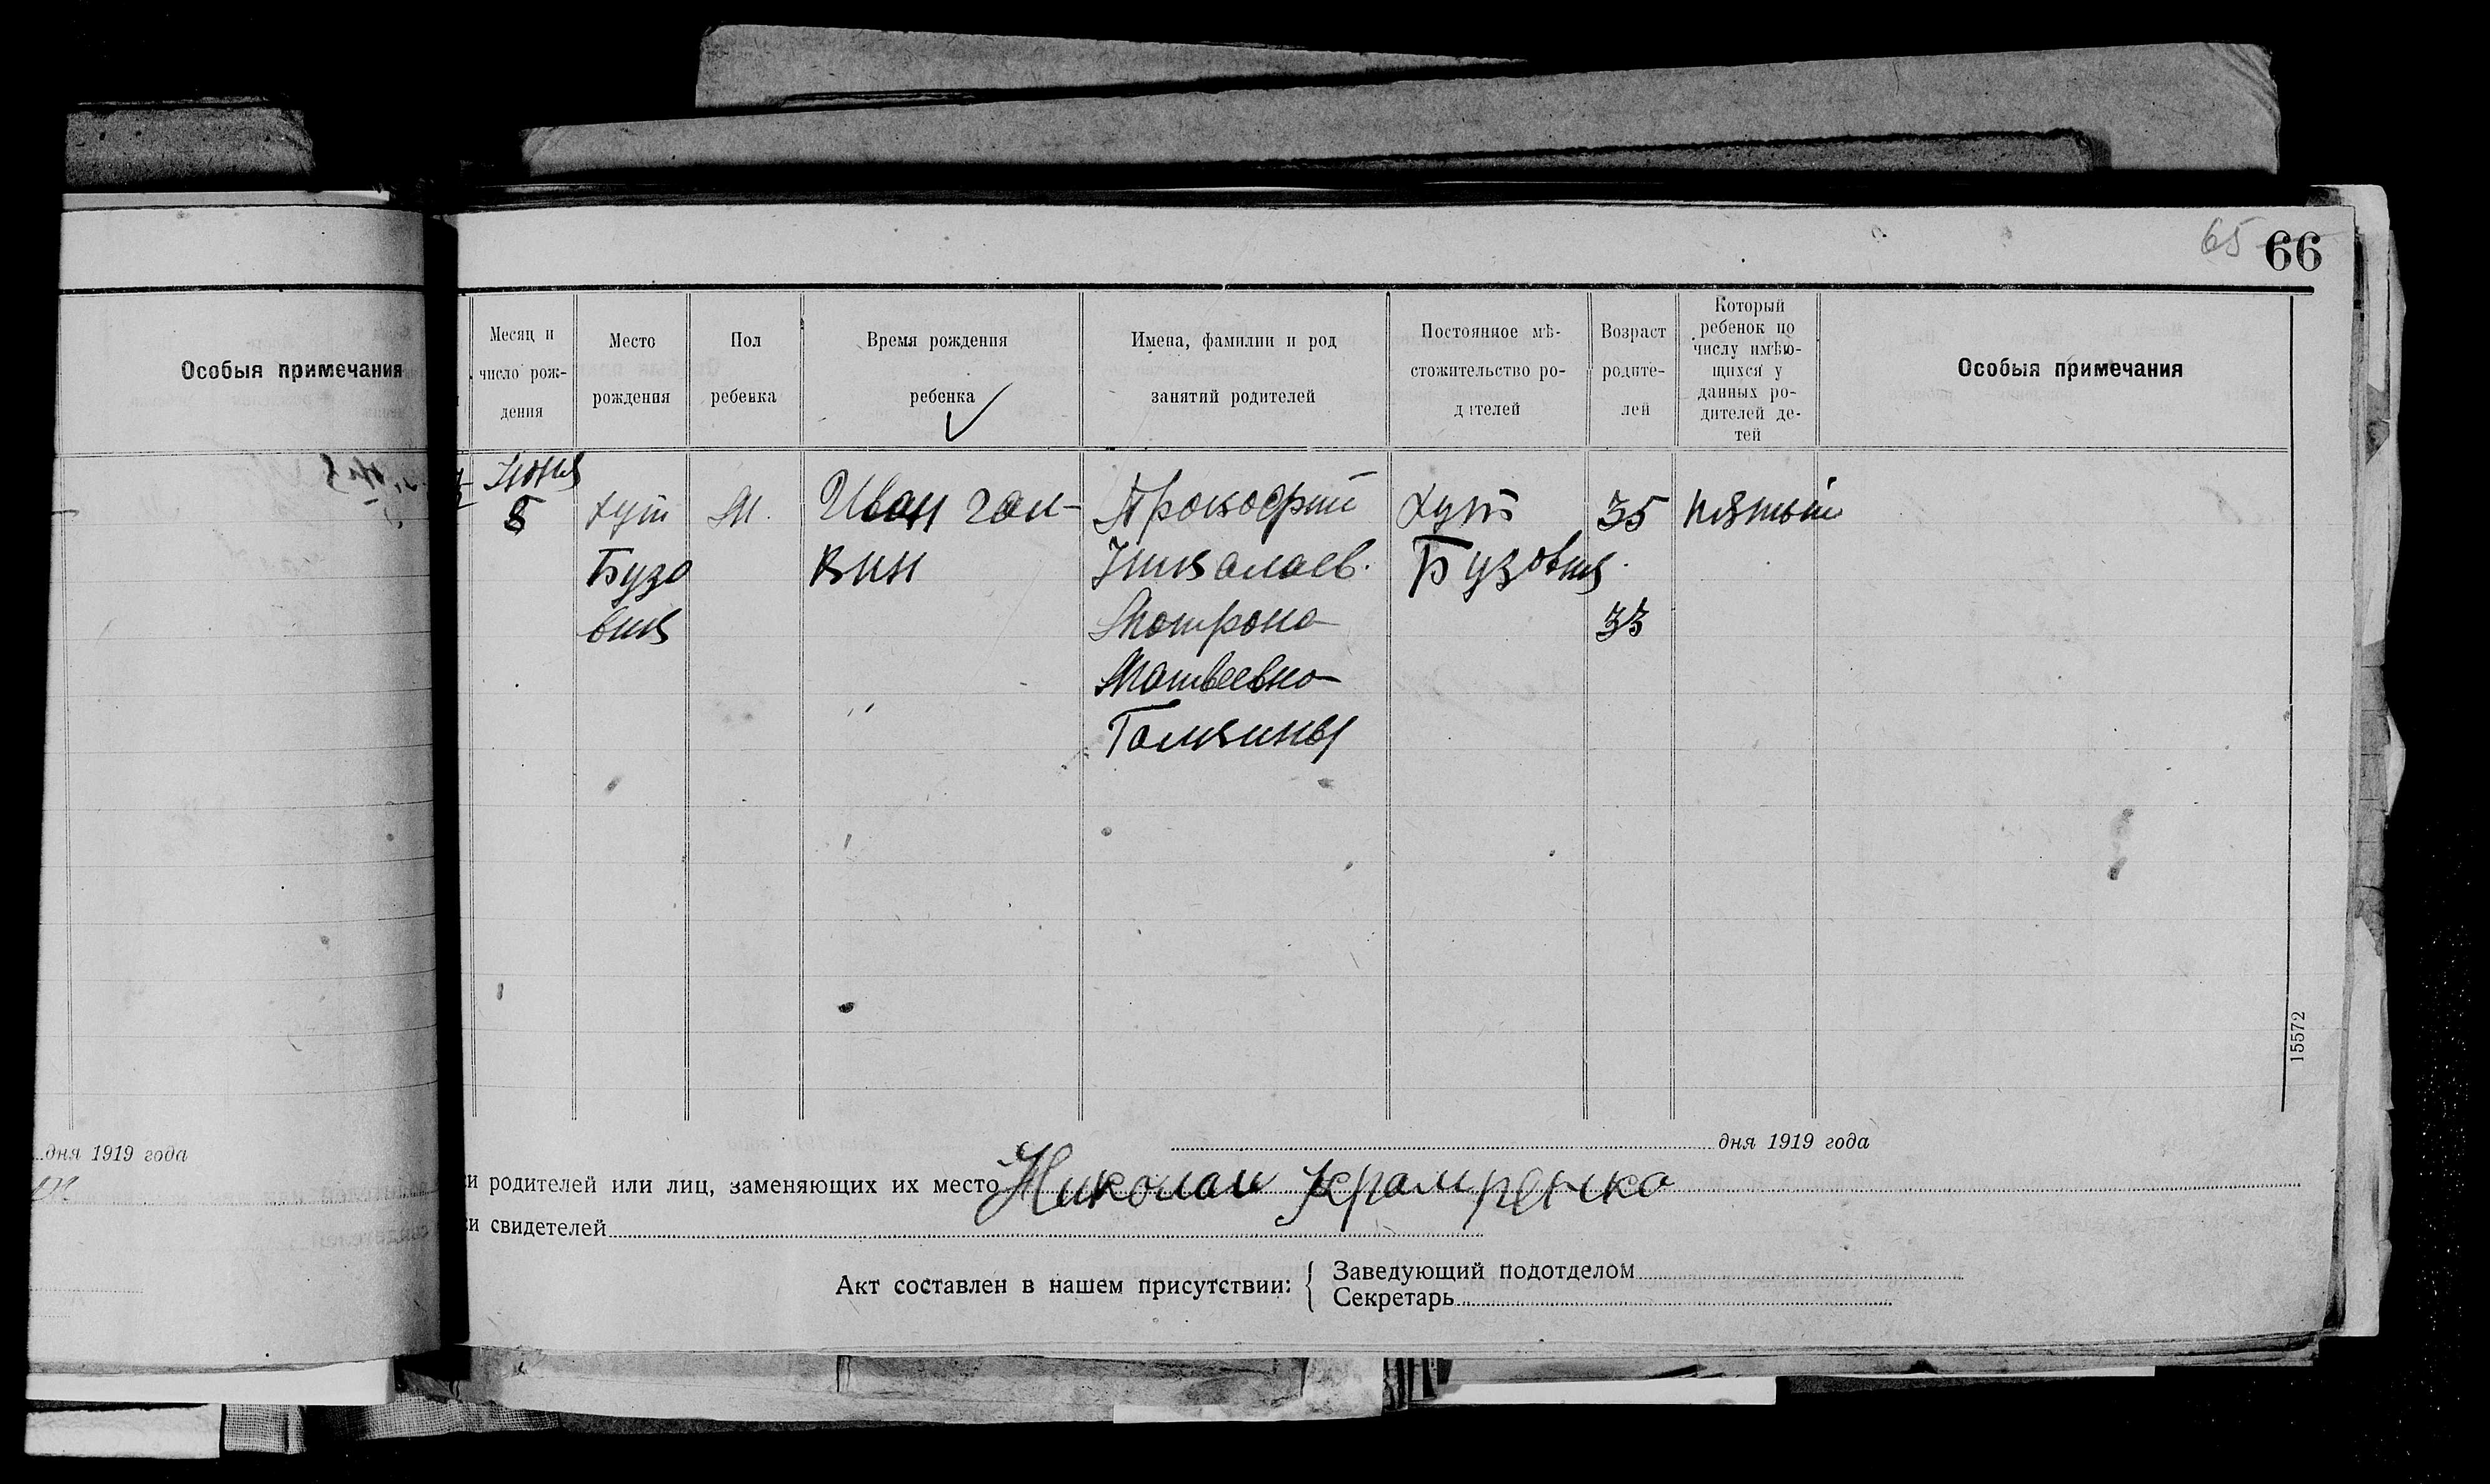 65 66
Особыя примечания
Месяц и
число рож-
дения
Место
рождения
Пол
ребенка
Время рождения
ребенка
Имена, фамилии и род
занятий родителей
Постоянное мѣ-
стожительство ро-
дителей
Возраст
родите-
лей
Который
ребенок по
числу имѣю-
щихся у
данных ро-
дителей де-
тей
Особыя примечания
Июня
8
хут
Бузо
вкя
М.
Иван Гал-
кин
Прокофий
Николаев.
Матрона
Матвеевна
Галкины
хут
Бузовкя
35
33
пятый
15572
дня 1919 года
дня 1919 года
и родителей или лиц, заменяющих их место Николай
и свидетелей
Акт составлен в нашем присутствии:
Заведующий подотделом
Секретарь